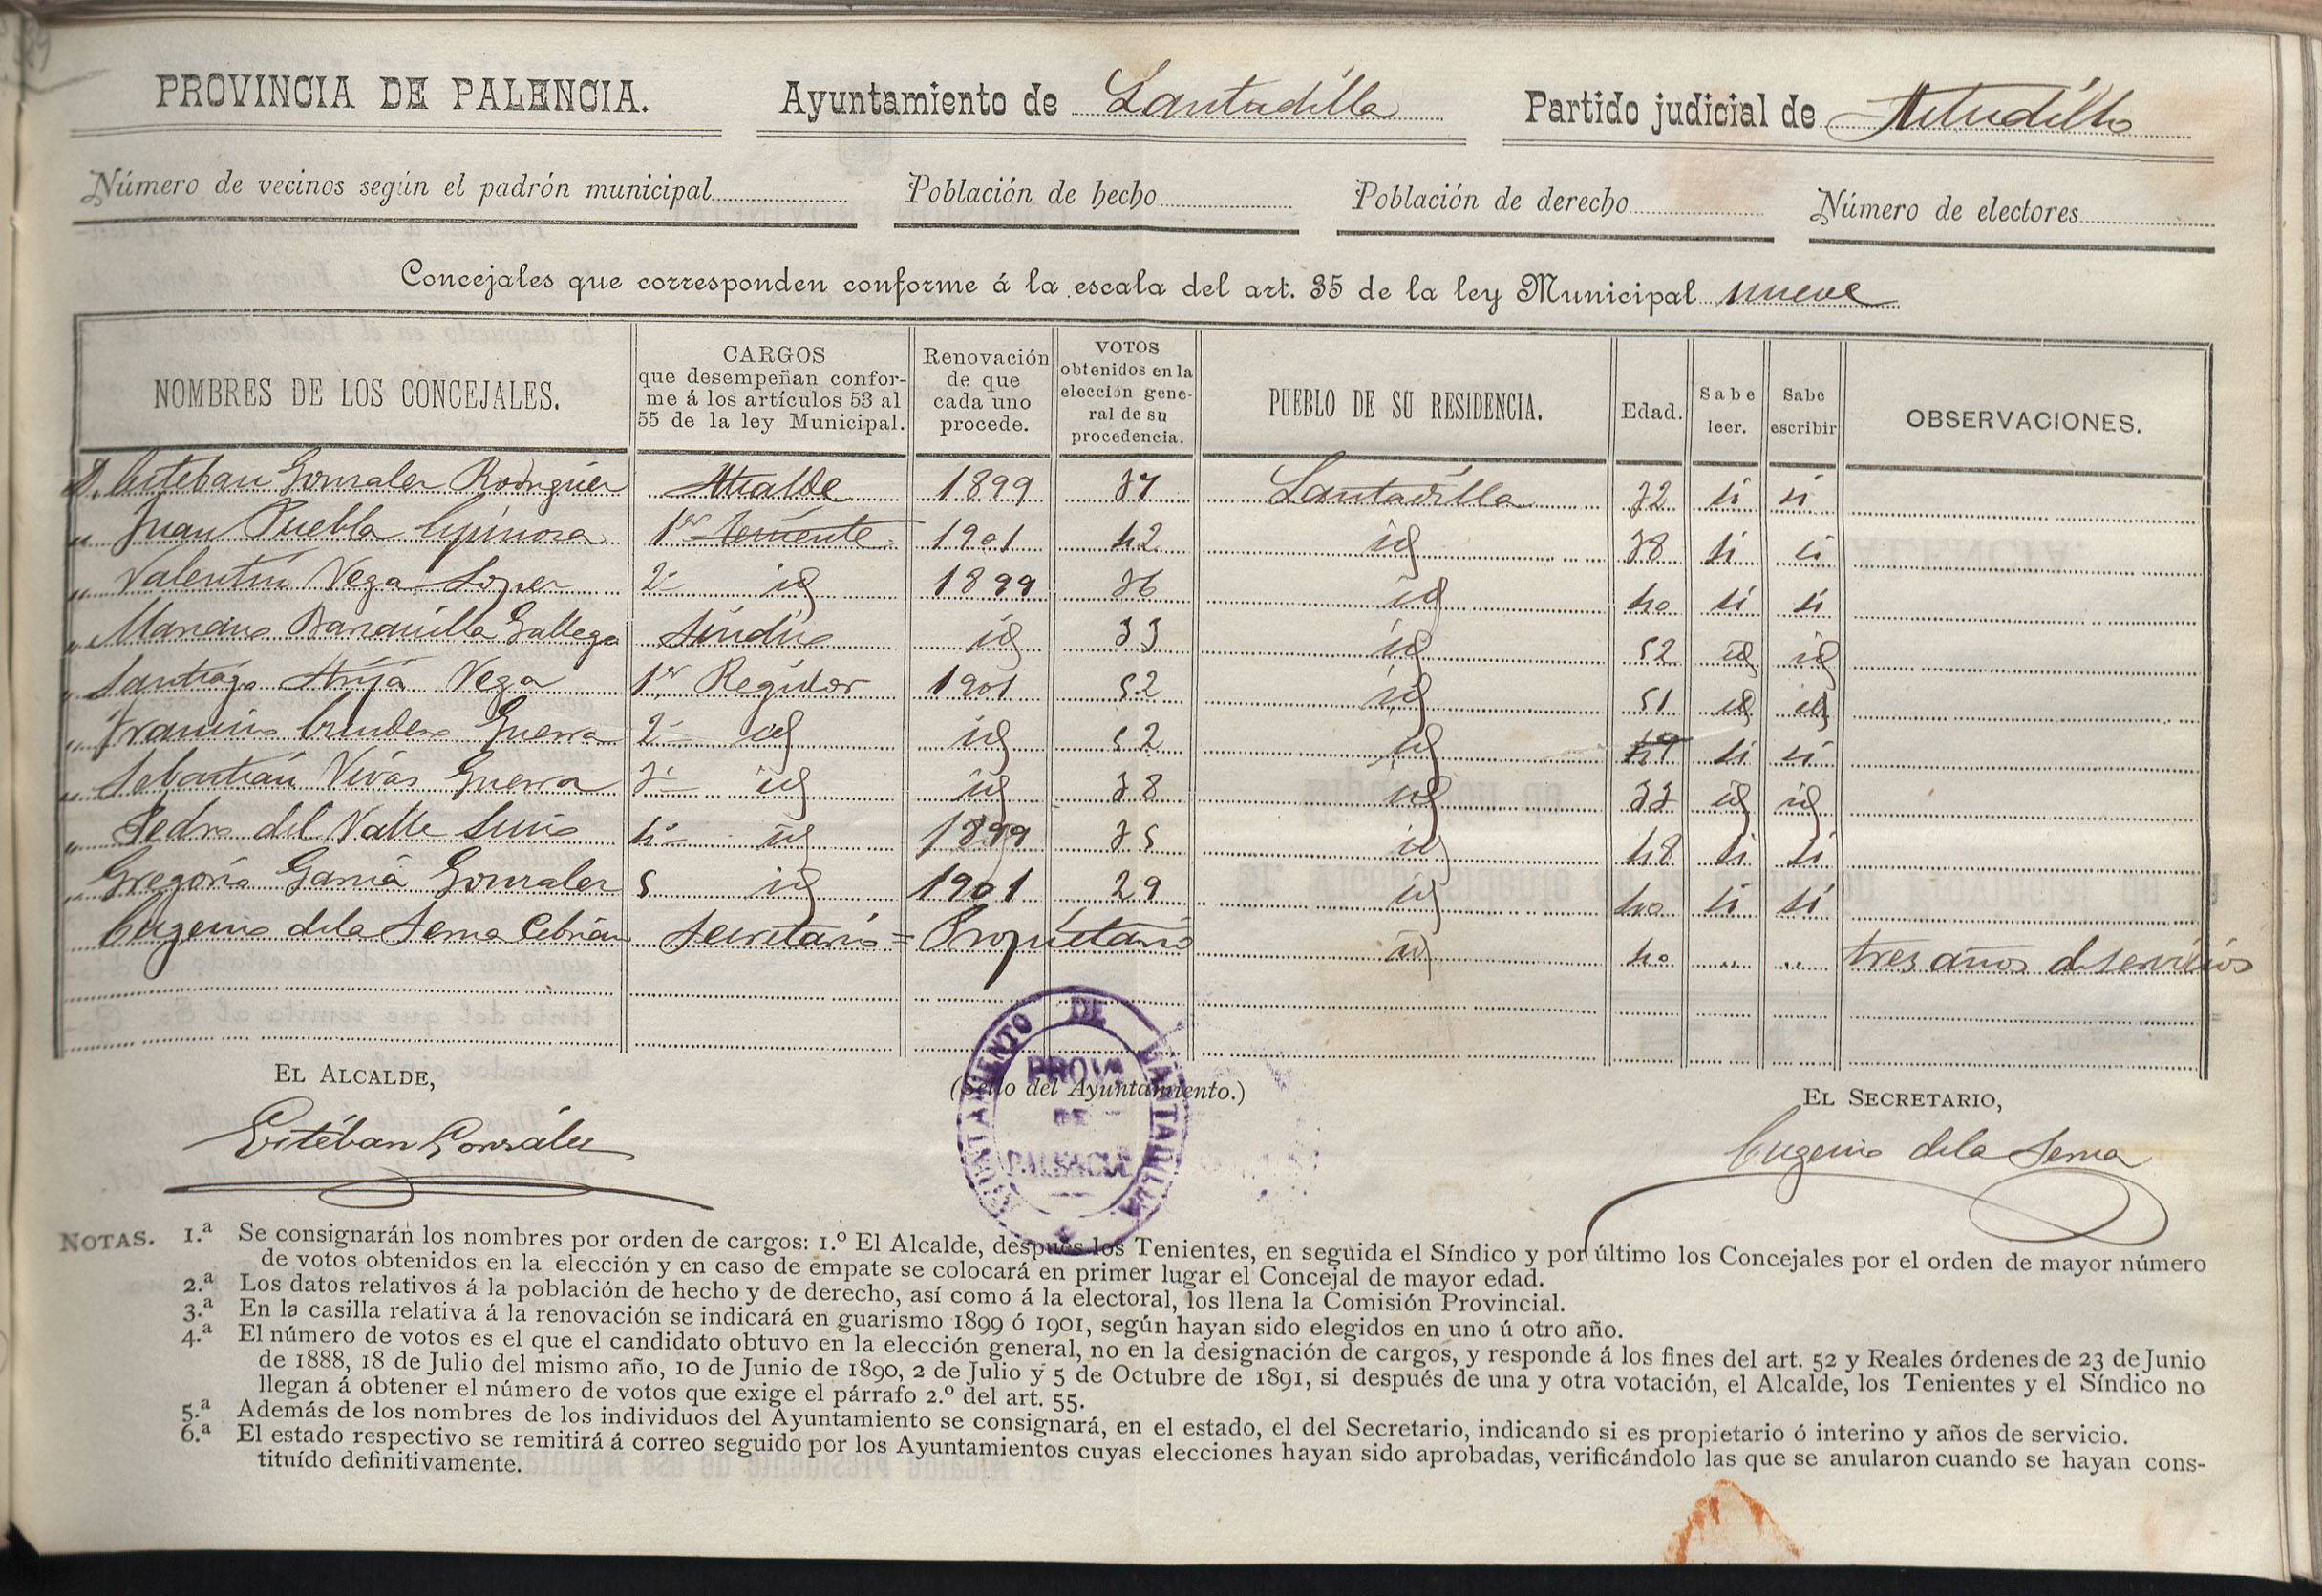 PROVINCIA DE PALENCIA. Ayuntamiento de Lantadilla Partido judicial de Astudillo
Número de vecinos según el padrón municipal Población de hecho Población de derecho Número de electores
Concejales que corresponden conforme á la escala del art. 35 de la ley Municipal nueve
NOMBRES DE LOS CONCEJALES. CARGOS que desempeñan conforme á los artículos 53 al 55 de la ley Municipal. Renovación de que cada uno procede. VOTOS obtenidos en la elección general de su procedencia. PUEBLO DE SU RESIDENCIA. Edad. Sabe leer. Sabe escribir OBSERVACIONES.
D. Esteban Gonzalez Rodriguez Alcalde 1899 37 Lantadilla 32 si si
" Juan Puebla Espinosa 1er teniente 1901 42 id 38 si si
" Valentin Vega Lopez 2º id 1899 36 id 40 si si
" Mariano Gallego Sindico id 33 id 52 id id
" Santiago Arija Vega 1er Regidor 1901 52 id 51 id id
" Francisco Guerra 2º id id 52 id 49 si si
" Sebastián Vivas Guerra 3º id id 38 id 33 id id
" Pedro del Valle 4º id 1899 35 id 48 si si
" Gregorio Garcia Gonzalez 5 id 1901 29 id 40 si si
Eugenio de la Serna Cebrián Secretario = Propietario id 40 " " tres años de servicios
EL ALCALDE, (Sello del Ayuntamiento.) EL SECRETARIO,
Estéban González Eugenio de la Serna
AYUNTAMIENTO DE LANTADILLA
PROVA
DE
PALENCIA
NOTAS. 1.ª Se consignarán los nombres por orden de cargos: 1.º El Alcalde, después los Tenientes, en seguida el Síndico y por último los Concejales por el orden de mayor número
de votos obtenidos en la elección y en caso de empate se colocará en primer lugar el Concejal de mayor edad.
2.ª Los datos relativos á la población de hecho y de derecho, así como á la electoral, los llena la Comisión Provincial.
3.ª En la casilla relativa á la renovación se indicará en guarismo 1899 ó 1901, según hayan sido elegidos en uno ú otro año.
4.ª El número de votos es el que el candidato obtuvo en la elección general, no en la designación de cargos, y responde á los fines del art. 52 y Reales órdenes de 23 de Junio
de 1888, 18 de Julio del mismo año, 10 de Junio de 1890, 2 de Julio y 5 de Octubre de 1891, si después de una y otra votación, el Alcalde, los Tenientes y el Síndico no
llegan á obtener el número de votos que exige el párrafo 2.º del art. 55.
5.ª Además de los nombres de los individuos del Ayuntamiento se consignará, en el estado, el del Secretario, indicando si es propietario ó interino y años de servicio.
6.ª El estado respectivo se remitirá á correo seguido por los Ayuntamientos cuyas elecciones hayan sido aprobadas, verificándolo las que se anularon cuando se hayan cons-
tituído definitivamente.